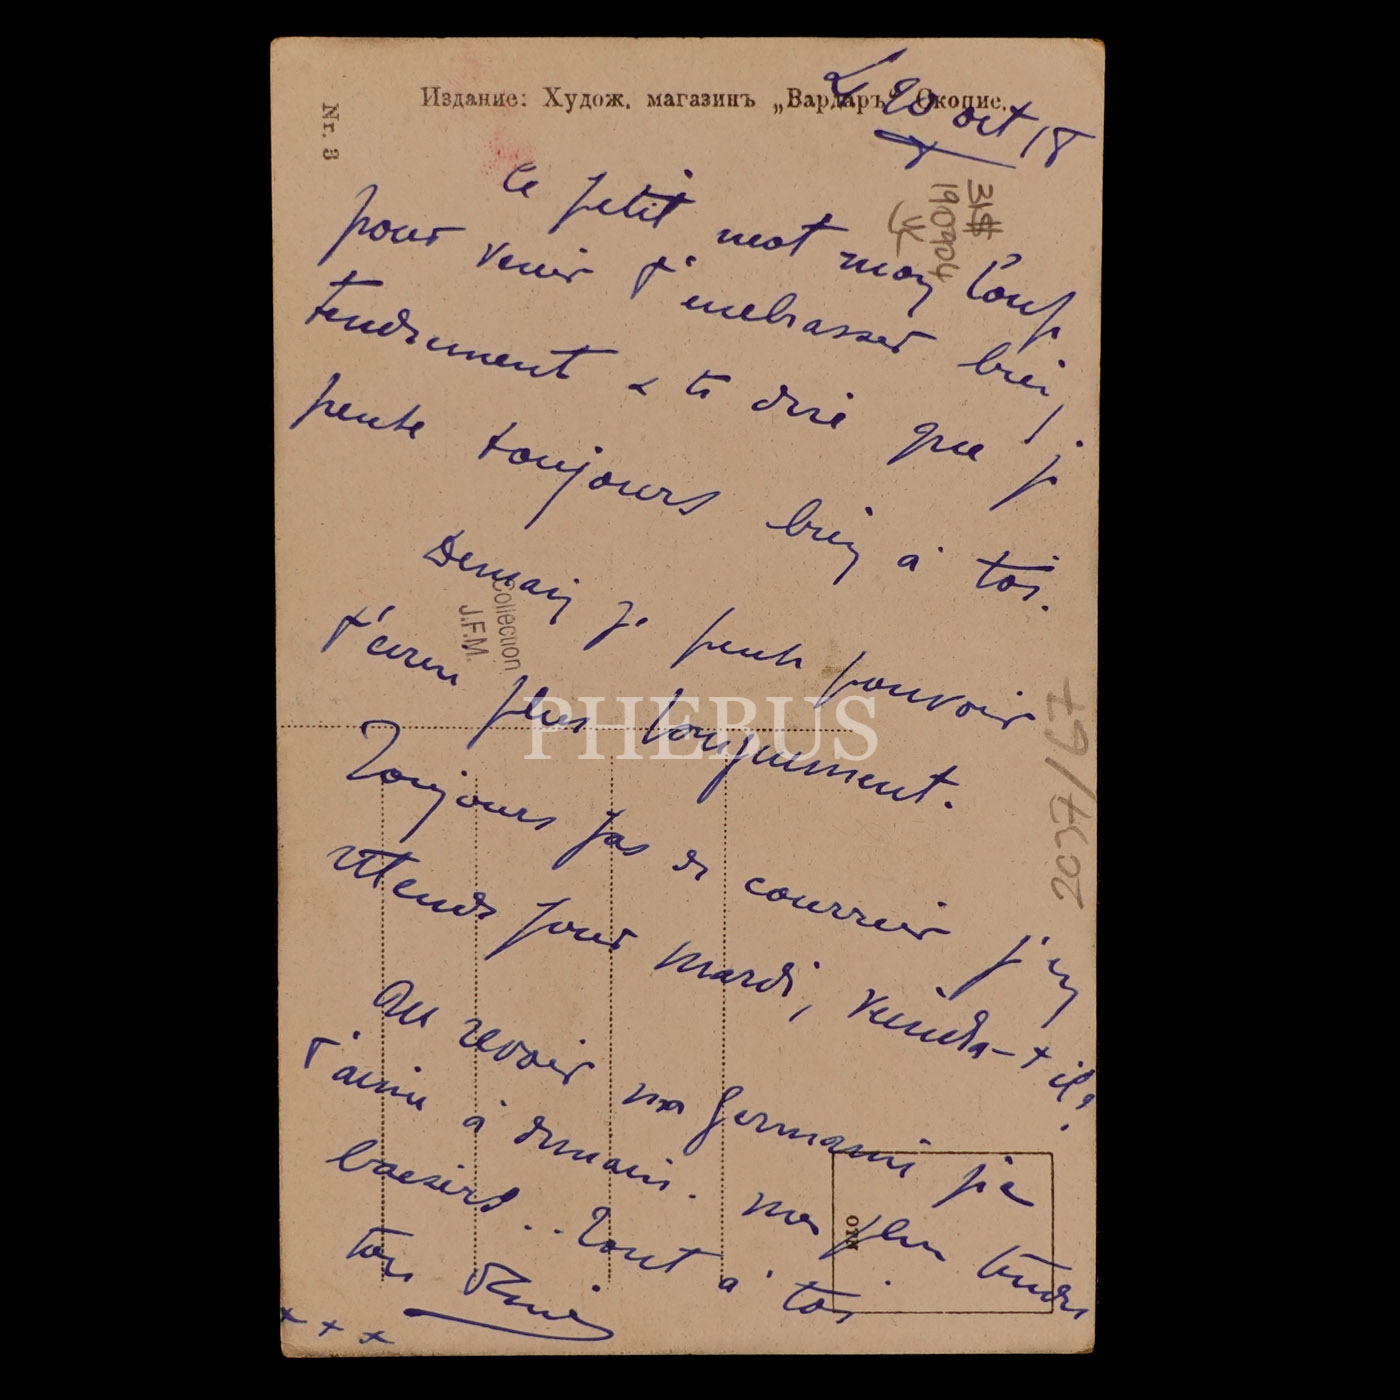 Издание: Худож. магазинъ „Вардаръ“ Скопие.
Nr. 3
Le 20 oct 18
31$
190904
Ce petit mot mon Loup
pour venir t'embrasser bien
tendrement & te dire que je
pense toujours bien à toi.
Demain je pense pouvoir
t'écrire plus longuement.
Collection
J.F.M.
PHEBUS
2037/67
Toujours pas de courrier j'en
attends pour mardi, viendra-t-il?
Au revoir ma Germaine je
t'aime à demain. mes plus tendres
baisers.. Tout à toi
ton
+ + +